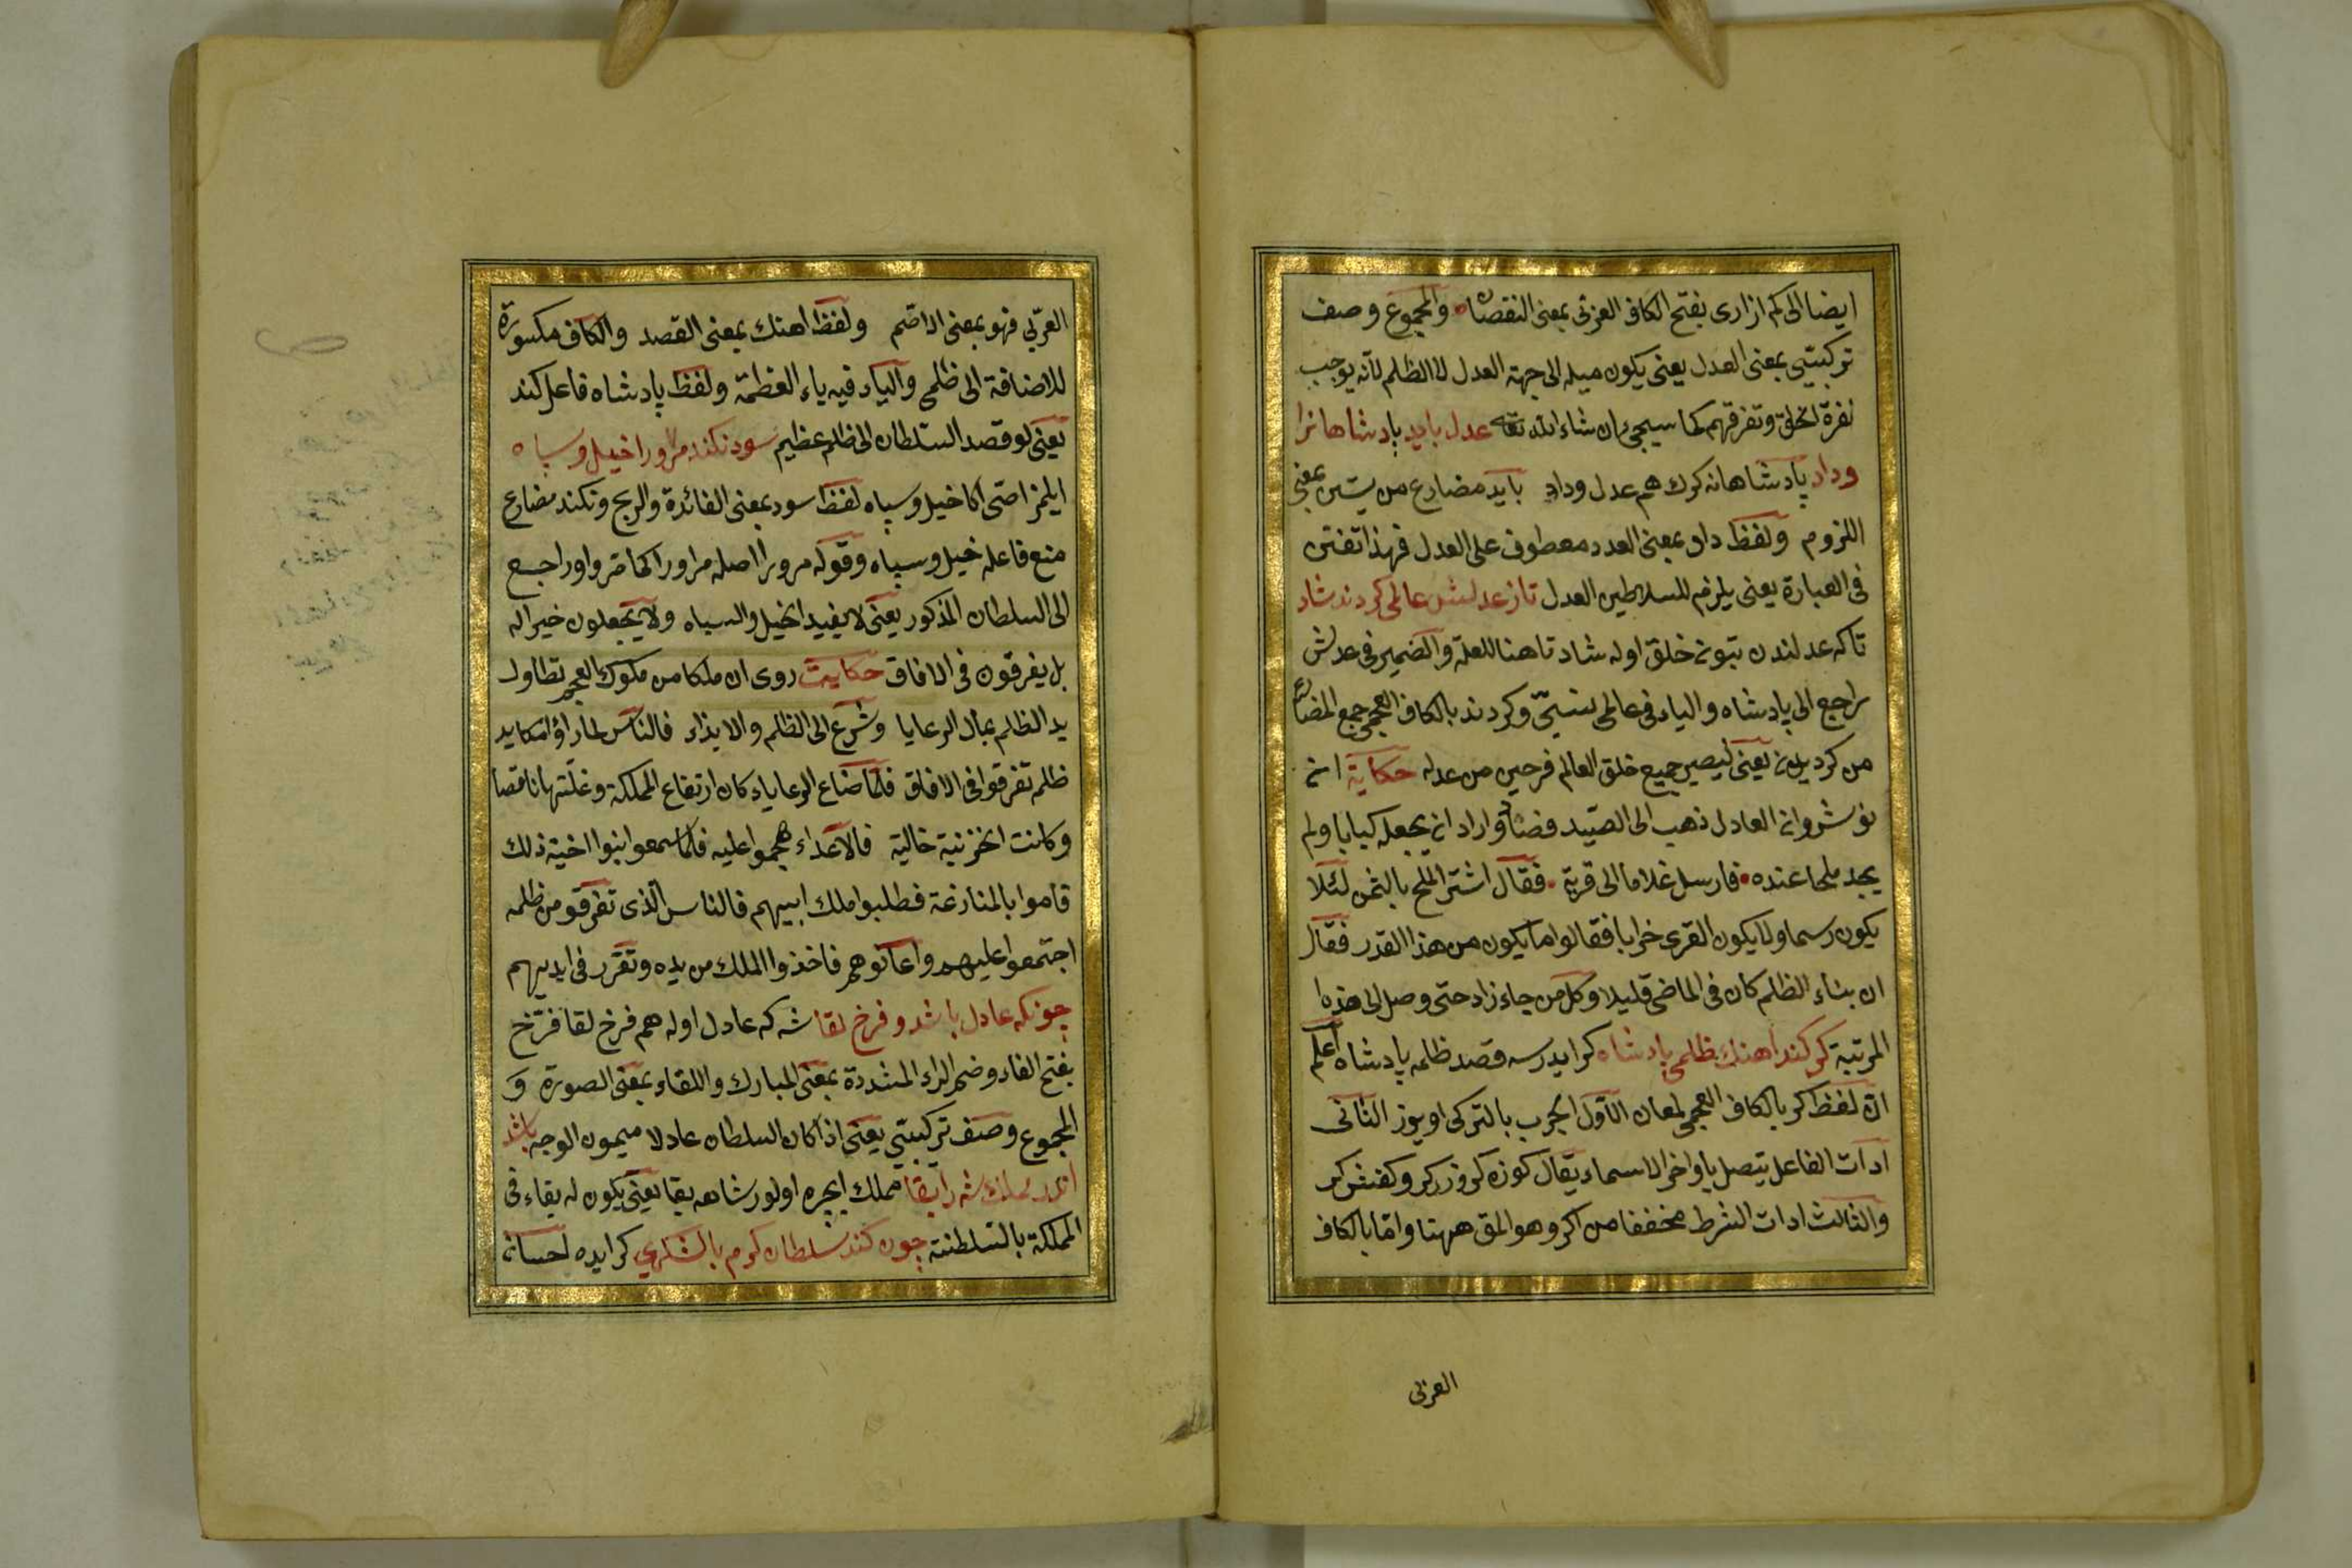 ايضا الى كم ازارى بفتح الكاف العربى بمعنى النقصان والمجموع وصف
تركيبىّ بمعنى العدل يعنى يكون ميله الى جهة العدل لا الظلم لانّه يوجب
نفرة الخلق وتفرقهم كما سيجئ ان شاء الله تعه عدل بايد پادشاهانرا
وداد پادشاهانه كرك هم عدل وداد بايد مضارع من بمعنى
اللزوم ولفظ داد بمعنى العدد معطوف على العدل فهذا تفنن
فى العبارة يعنى يلزم للسلاطين العدل تا زعدلش عالمى كردند شاد
تا كه عدلندن خلق اوله شاد تا هنا للعلة والضمير فى عدلش
راجع الى پادشاه والياء فى عالمى وكردند بالكاف العجمى جمع المضارع
من يعنى ليصير جميع خلق العالم فرحين من عدله حكاية ان
نوشروان العادل ذهب الى الصّيد واراد ان يجعله كبابا ولم
يجد ملحا عنده فارسل غلاما الى قرية فقال اشتر الملح بالثمن لئلا
يكون رسما ولا يكون القرى خرابا فقالوا ما يكون من هذا القدر فقال
ان بناء الظلم كان فى الماضى قليلا وكل من جاء زاد حتى وصل الى هذه
المرتبة كر كند اهنك ظلمى پادشاه كر ايدرسه قصد ظلمه پادشاه اعلم
انّ لفظ كر بالكاف العجمى لمعان الاول الجرب بالتركى اويوز الثانى
ادات الفاعل يتصل باواخر الاسماء يقال كوزه كر وزركر وكفش كر
والثالث ادات الشرط مخففا من اكر وهو المق ههنا وامّا بالكاف
العربى
العربّى فهو بمعنى الاصّم ولفظ اهنك بمعنى القصد والكاف مكسورة
للاضافة الى ظلمى والياء فيه ياء العظمة ولفظ پادشاه فاعل كند
يعنى لو قصد السّلطان الى ظلم عظيم سود نكند مرورا خيل وسپاه
ايلمز اصّى اكا خيل وسپاه لفظ سود بمعنى الفائدة والربح ونكند مضارع
منع فاعله خيل وسپاه وقوله مرورا اصله مر اورا كما مّر واو راجع
الى السلطان المذكور يعنى لا يفيد الخيل والسپاه ولا يجعلون خيرا له
بل يفرقون فى الافاق حكايت روى ان ملكا من ملوك العجم تطاول
يد الظلم بمال الرعايا وشرع الى الظلم والايذاء فالناس لما راؤا مكايد
ظلمه تفرقوا فى الافاق فلما ضاع الرعاياء كان ارتفاع المملكة وغلّتها ناقصا
وكانت الخزنية خالية فالاعداء هجموا عليه فلما سمعوا ابنوا اخيه ذلك
قاموا بالمنازعة فطلبوا ملك ابيهم فالناس الّذى تفرقو من ظلمه
اجتمعوا عليهم واعانوهم فاخذوا الملك من يده وتقرر فى ايديهم
چونكه عادل باشد وفرخ لقا شه كه عادل اوله هم فرخ لقا فرّخ
بفتح الفاء وضم الراء المشددة بمعنى المبارك واللقاء بمعنى الصورة و
المجموع وصف تركيبىّ يعنى اذا كان السلطان عادلا ميمون الوجه باشد
اندر مملكت شه را بقا مملك ايچره اولور شاهه بقا يعنى يكون له بقاء فى
المملكة بالسّلطنة چون كند سلطان كرم با لشكرى كر ايده احسان